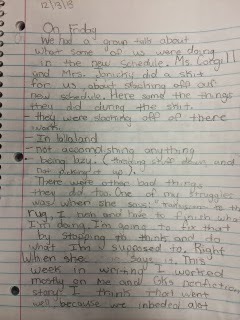 12/3/18
On Friday
We had a group talk about
what some of us were doing
in the new schedule. Ms. Corgill
and Mrs. did a skit
for us about slacking off our
new schedule. Here some the things
they did during the skit.
- they were slacking off of there
work.
- In lalaland
- not accomolishing anything
- being lazy. (throwing stuff down and
not picking it up).
There were other bad things
they did too. One of my struggles
was when she says "transition to the
rug, I rush and have to finish what
I'm doing. I'm going to fix that
by stopping to think and do
what I'm supposed to. Right
When she says it. This
week in writing I worked
mostly on me and nonfiction
story. I think that went
well because we alot